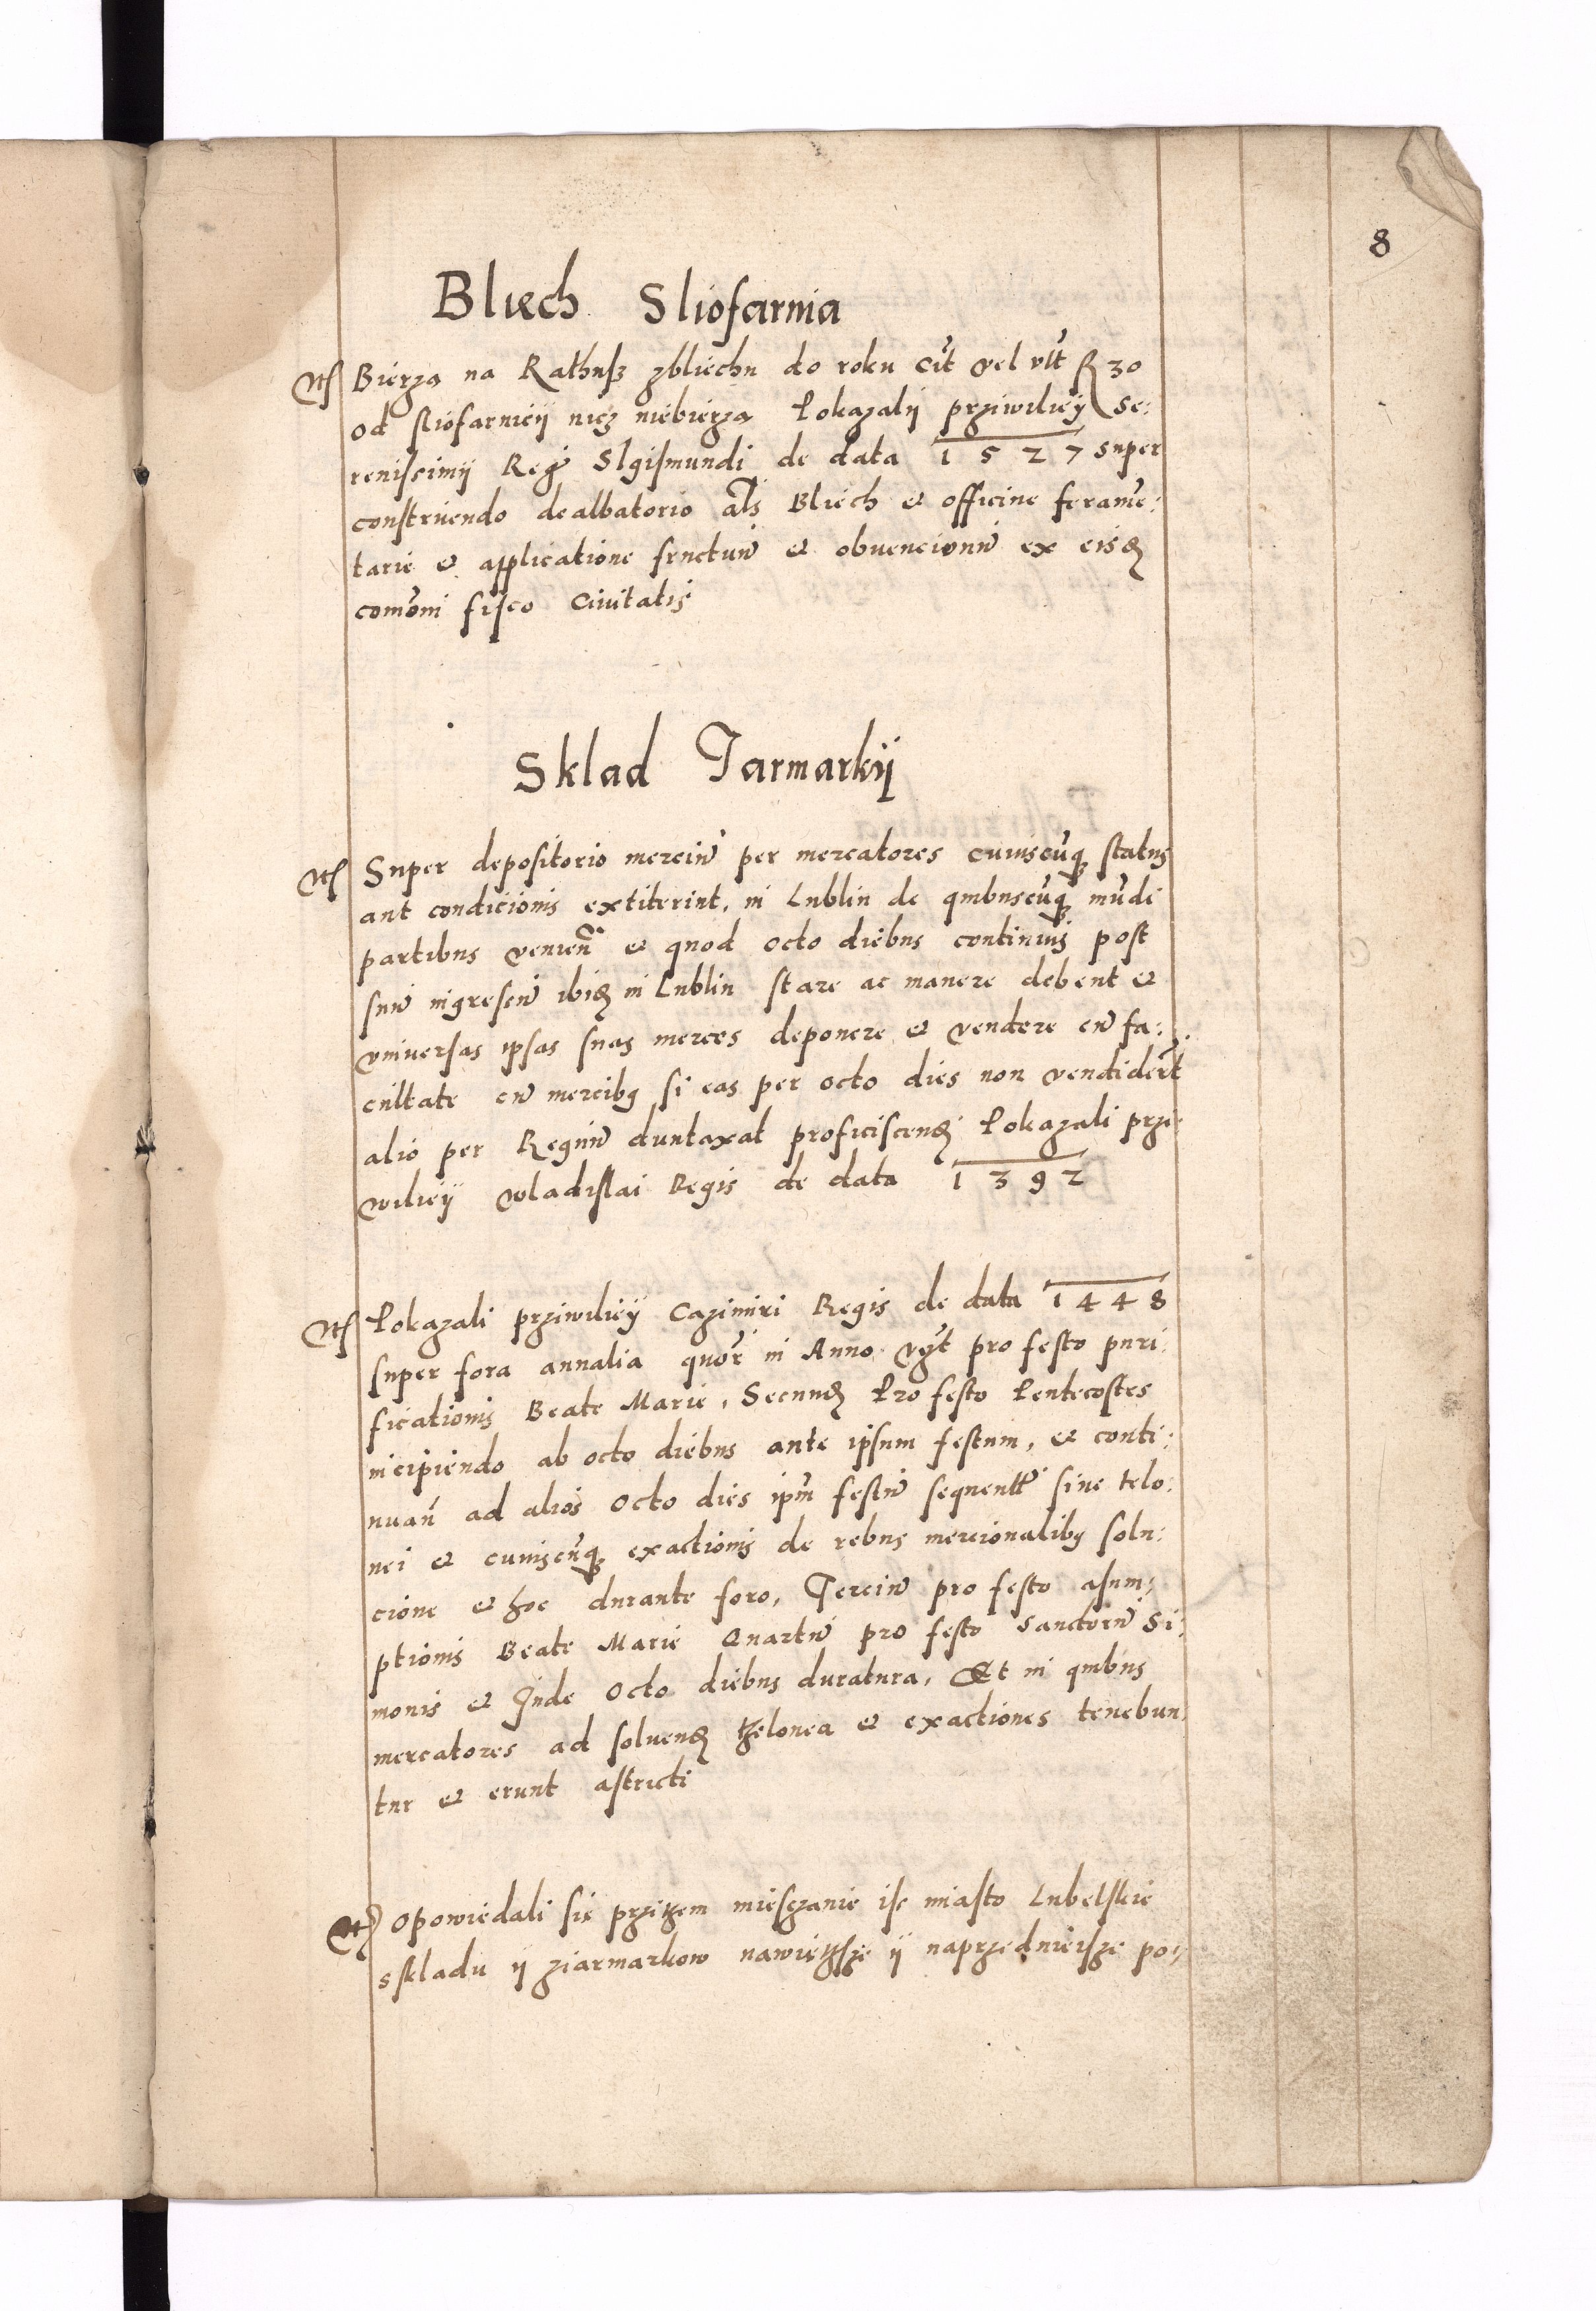 8
Bliech Sliofarnia
Itē Bierzą na Rathusz zbliechu do roku cit͞ vel vlt͞ R 30
od sliofarniey nicz niebierzą Pokazaly prziwiliey Se:
renissimy Reg͞ Sigismundi de data 1527 super
construendo dealbatorio al͞s Bliech et officine ferame͞:
tarie et applicatione fructuu͞ et obuencionu͞ ex eisd͞
como͞ni fisco Ciuitatis
Sklad Jarmarky
Itē Super depositorio merciu͞ per mercatores cuiuscu͞q; status
aut condicionis extiterint, in Lublin de quibuscu͞q; mu͞di
partibus venien͞ et quod octo diebus continuis post
suu͞ ingressu͞ ibid͞ in Lublin stare ac manere debent et
vniuersas ipsas suas merces deponere et vendere cu͞ fa:
cultate cu͞ mercib9 si eas per octo dies non vendider͞t
alio per Regnu͞ duntaxat proficiscend͞ Pokazali przi
wiliey Wladislai Regis de data 1392
Itē Pokazali prziwiliey Cazimiri Regis de data 1448
super fora annalia quor͞ in Anno vg͞t pro festo puri:
ficationis Beate Marie, Secund͞ Pro festo Pentecostes
incipiendo ab octo diebus ante ipsum festum, et conti:
nuan͞ ad alios octo dies ipm͞ festu͞ sequentt͞ sine telo:
nei et cuiuscu͞q; exactionis de rebus mercionalib9 solu:
cione et hoc durante foro, Terciu͞ pro festo asum:
ptionis Beate Marie Quartu͞ pro festo Sanctoru͞ Si:
monis et Jude Octo diebus duratura, Et in quibus
mercatores ad soluend͞ thelonea et exactiones tenebun:
tur et erunt astricti
Itē Opowiedali sie przitzem miesczanie isz miasto Lubelskie
s skladu y ziarmarkow nawietzsze y naprzednieisze po: